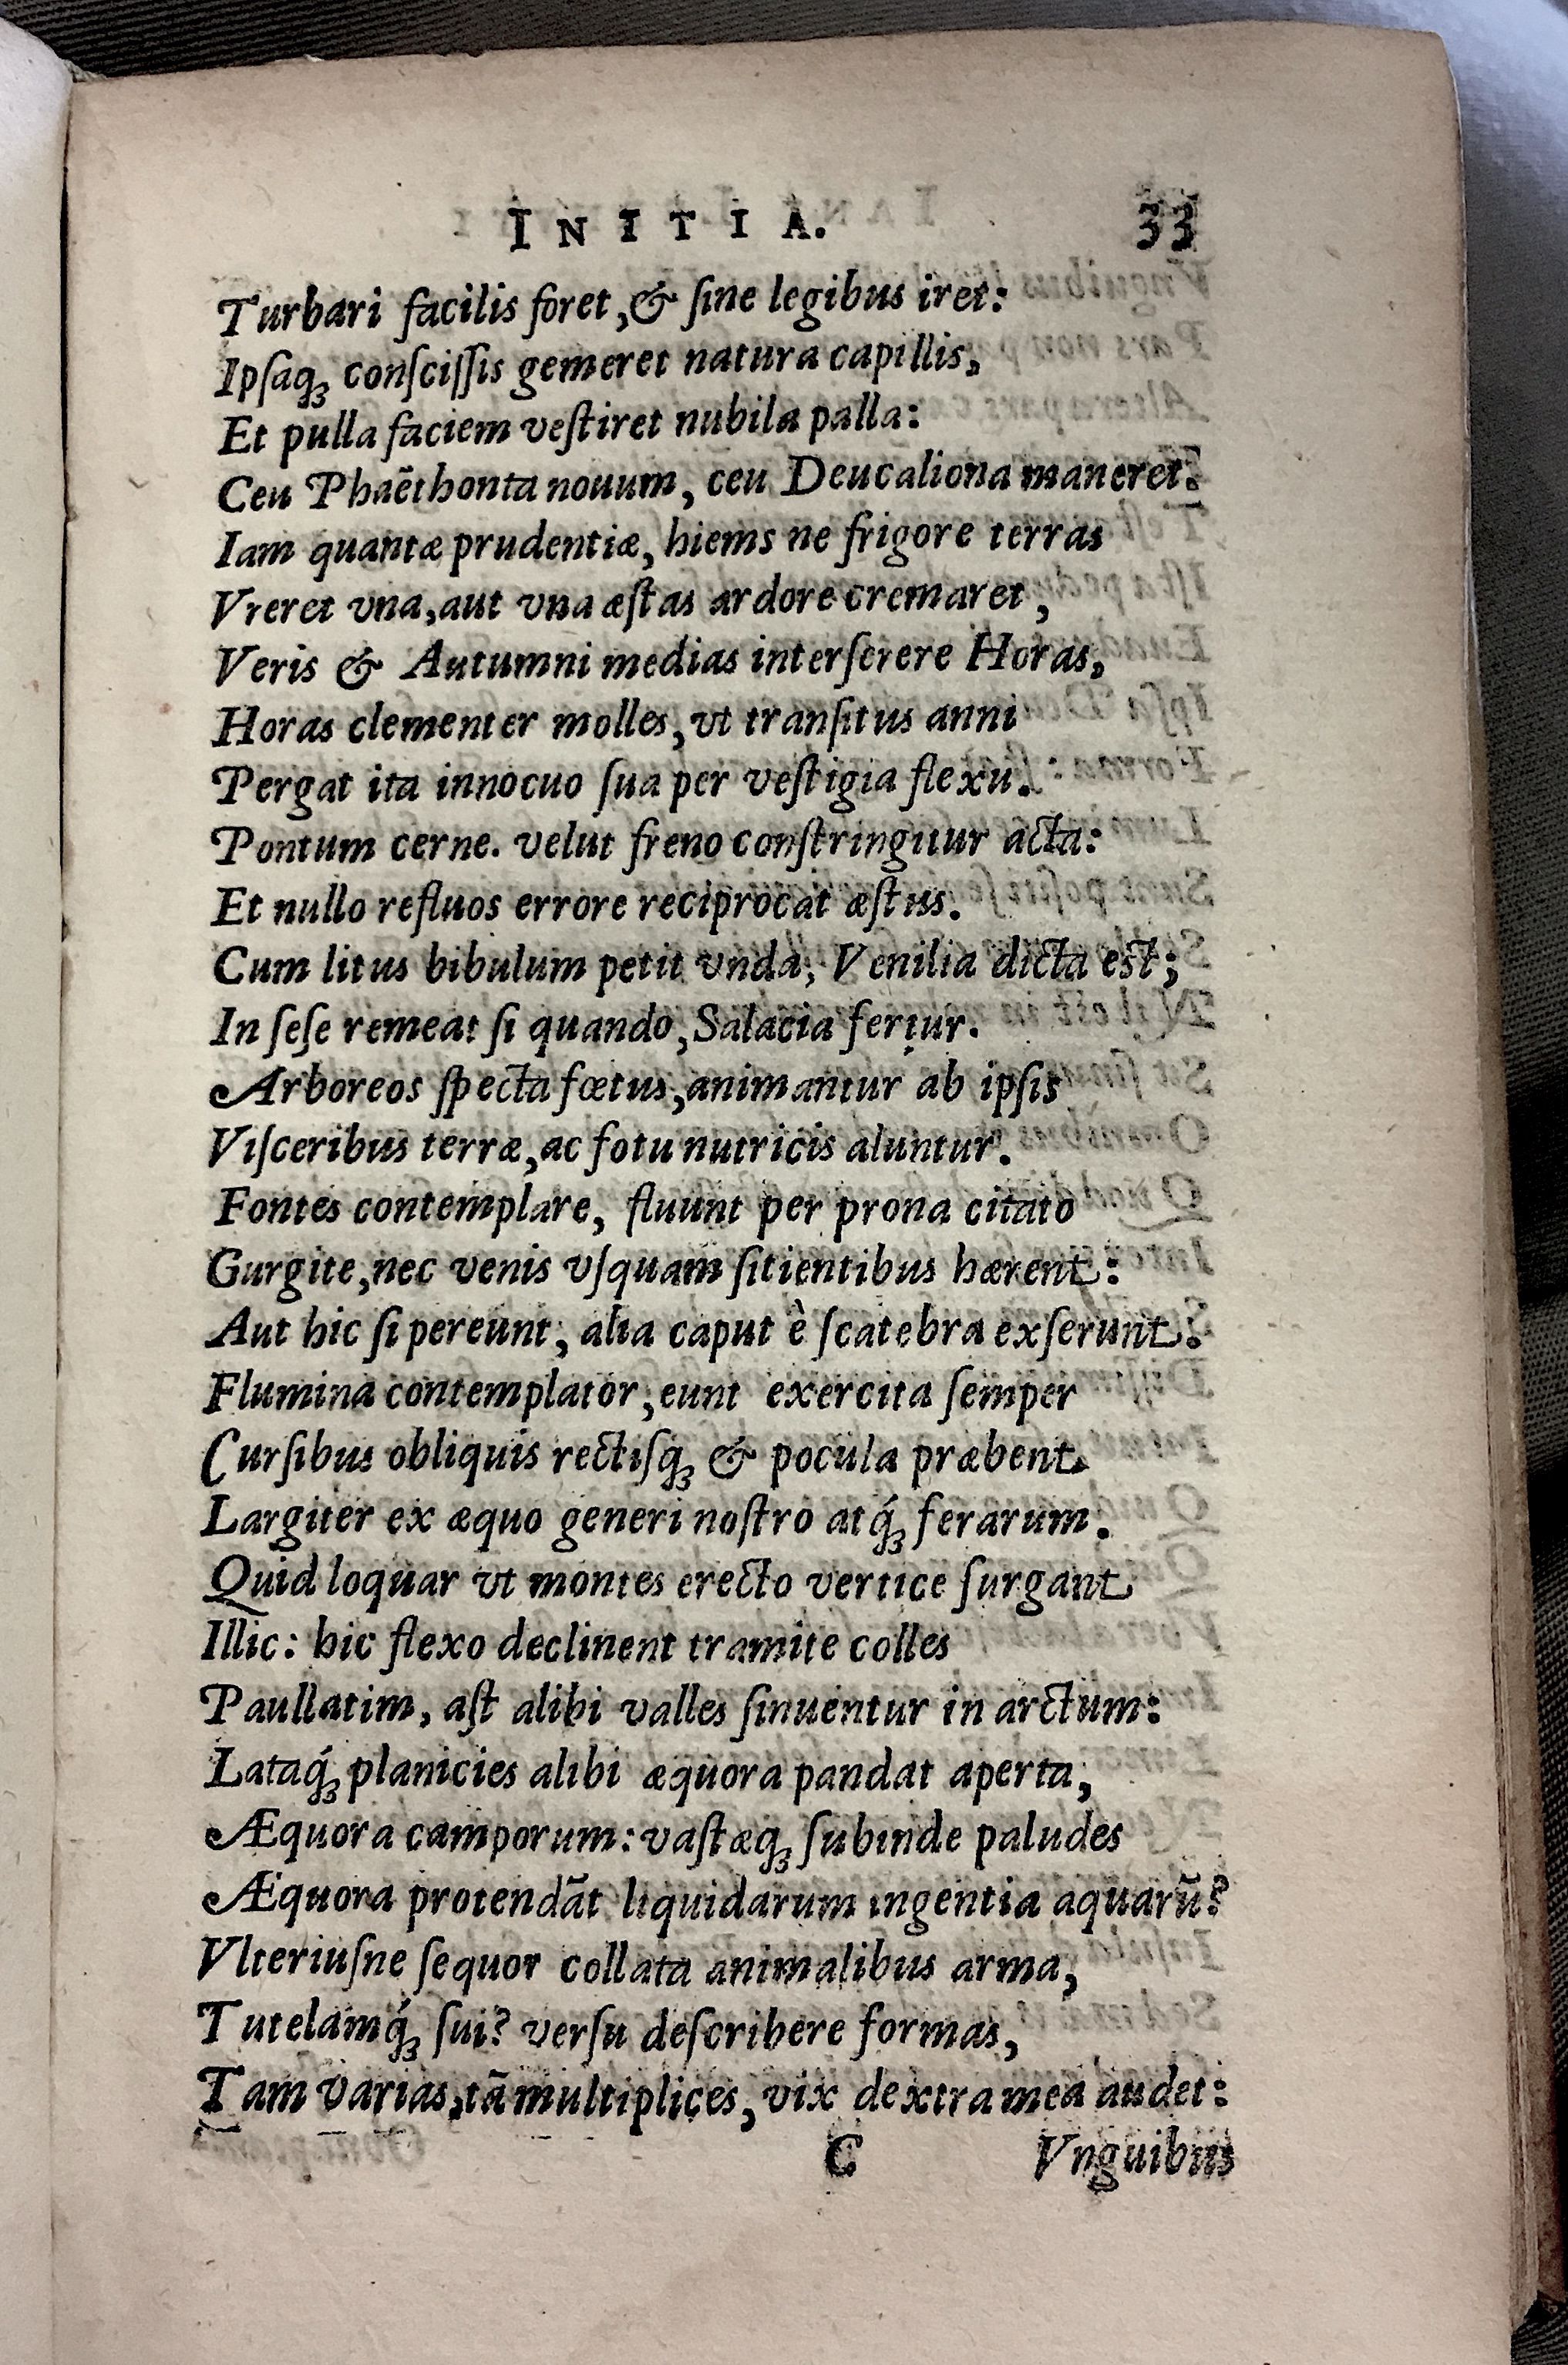 INITIA. 33
Turbari facilis foret, & ſine legibus iret:
Ipſaq́ꝫ conſciſſis gemeret natura capillis,
Et pulla faciem veſtiret nubila palla:
Ceu Phaëthonta nouum, ceu Deucaliona maneret.
Iam quantæ prudentiæ, hiems ne frigore terras
Vreret vna, aut vna æſtas ardore cremaret,
Veris & Autumni medias interſerere Horas,
Horas clementer molles, vt tranſitus anni
Pergat ita innocuo ſua per veſtigia flexu.
Pontum cerne. velut freno conſtringitur acta:
Et nullo refluos errore reciprocat æſtus.
Cum litus bibulum petit vnda, Venilia dicta eſt;
In ſeſe remeat ſi quando, Salacia fertur.
Arboreos ſpecta fœtus, animantur ab ipſis
Viſceribus terræ, ac fotu nutricis aluntur.
Fontes contemplare, fluunt per prona citato
Gurgite, nec venis vſquam ſitientibus hærent:
Aut hic ſi pereunt, alia caput è ſcatebra exſerunt.
Flumina contemplator, eunt exercita ſemper
Curſibus obliquis rectiſqꝫ & pocula præbent
Largiter ex æquo generi noſtro atq́ꝫ ferarum.
Quid loquar vt montes erecto vertice ſurgant
Illic: hic flexo declinent tramite colles
Paullatim, aſt alibi valles ſinuentur in arctum:
Lataq́ꝫ planicies alibi æquora pandat aperta,
Æquora camporum: vaſtæqꝫ ſubinde paludes
Æquora protendāt liquidarum ingentia aquarū?
Vlteriuſne ſequor collata animalibus arma,
Tutelamq́ꝫ ſui? verſu deſcribere formas,
Tam varias, tā multiplices, vix dextra mea audet:
C Vnguibus